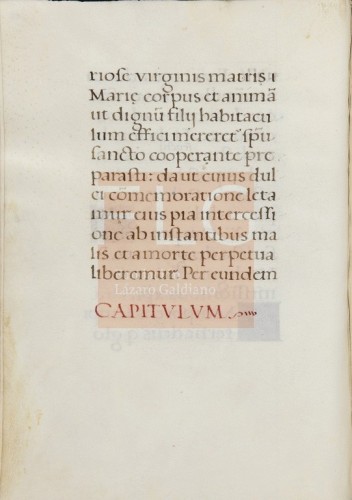 riose virginis matris τ
Marię corpus et animā
ut dignū filij habitacu
lum effici mereret᷑ spū
sancto cooperante pre
parasti: da ut cuius dul
ci cōmemoratione leta
mur eius pia intercessi
one ab instantibus ma
lis et a morte perpetua
liberemur. Per eundem
CAPITVLVM.
FLG
Lázaro Galdiano